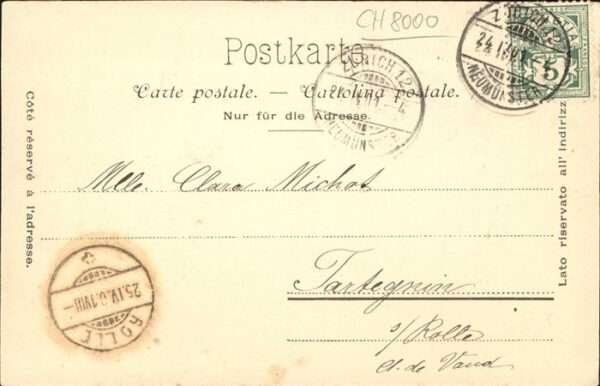 CH 8000
Postkarte.
Carte postale. — Cartolina postale.
Nur für die Adresse.
ZÜRICH 12
NEUMÜNSTER
ZÜRICH 12
NEUMÜNSTER
5
Côté réservé à l'adresse.
Lato riservato all' indirizzo
Mlle. Clara Michot
Tartegnin
s/Rolle
Ct. de Vaud
25.IV.01.VIII—
ROLLE